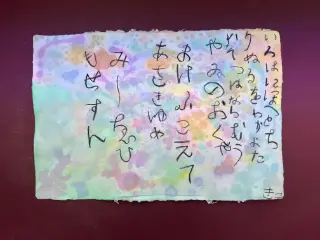 いろはにほへとち
りぬるをわかよた
れそつねならむう
のおくや
まけふこえて
あさきゆめ
みしゑひ
もせすん